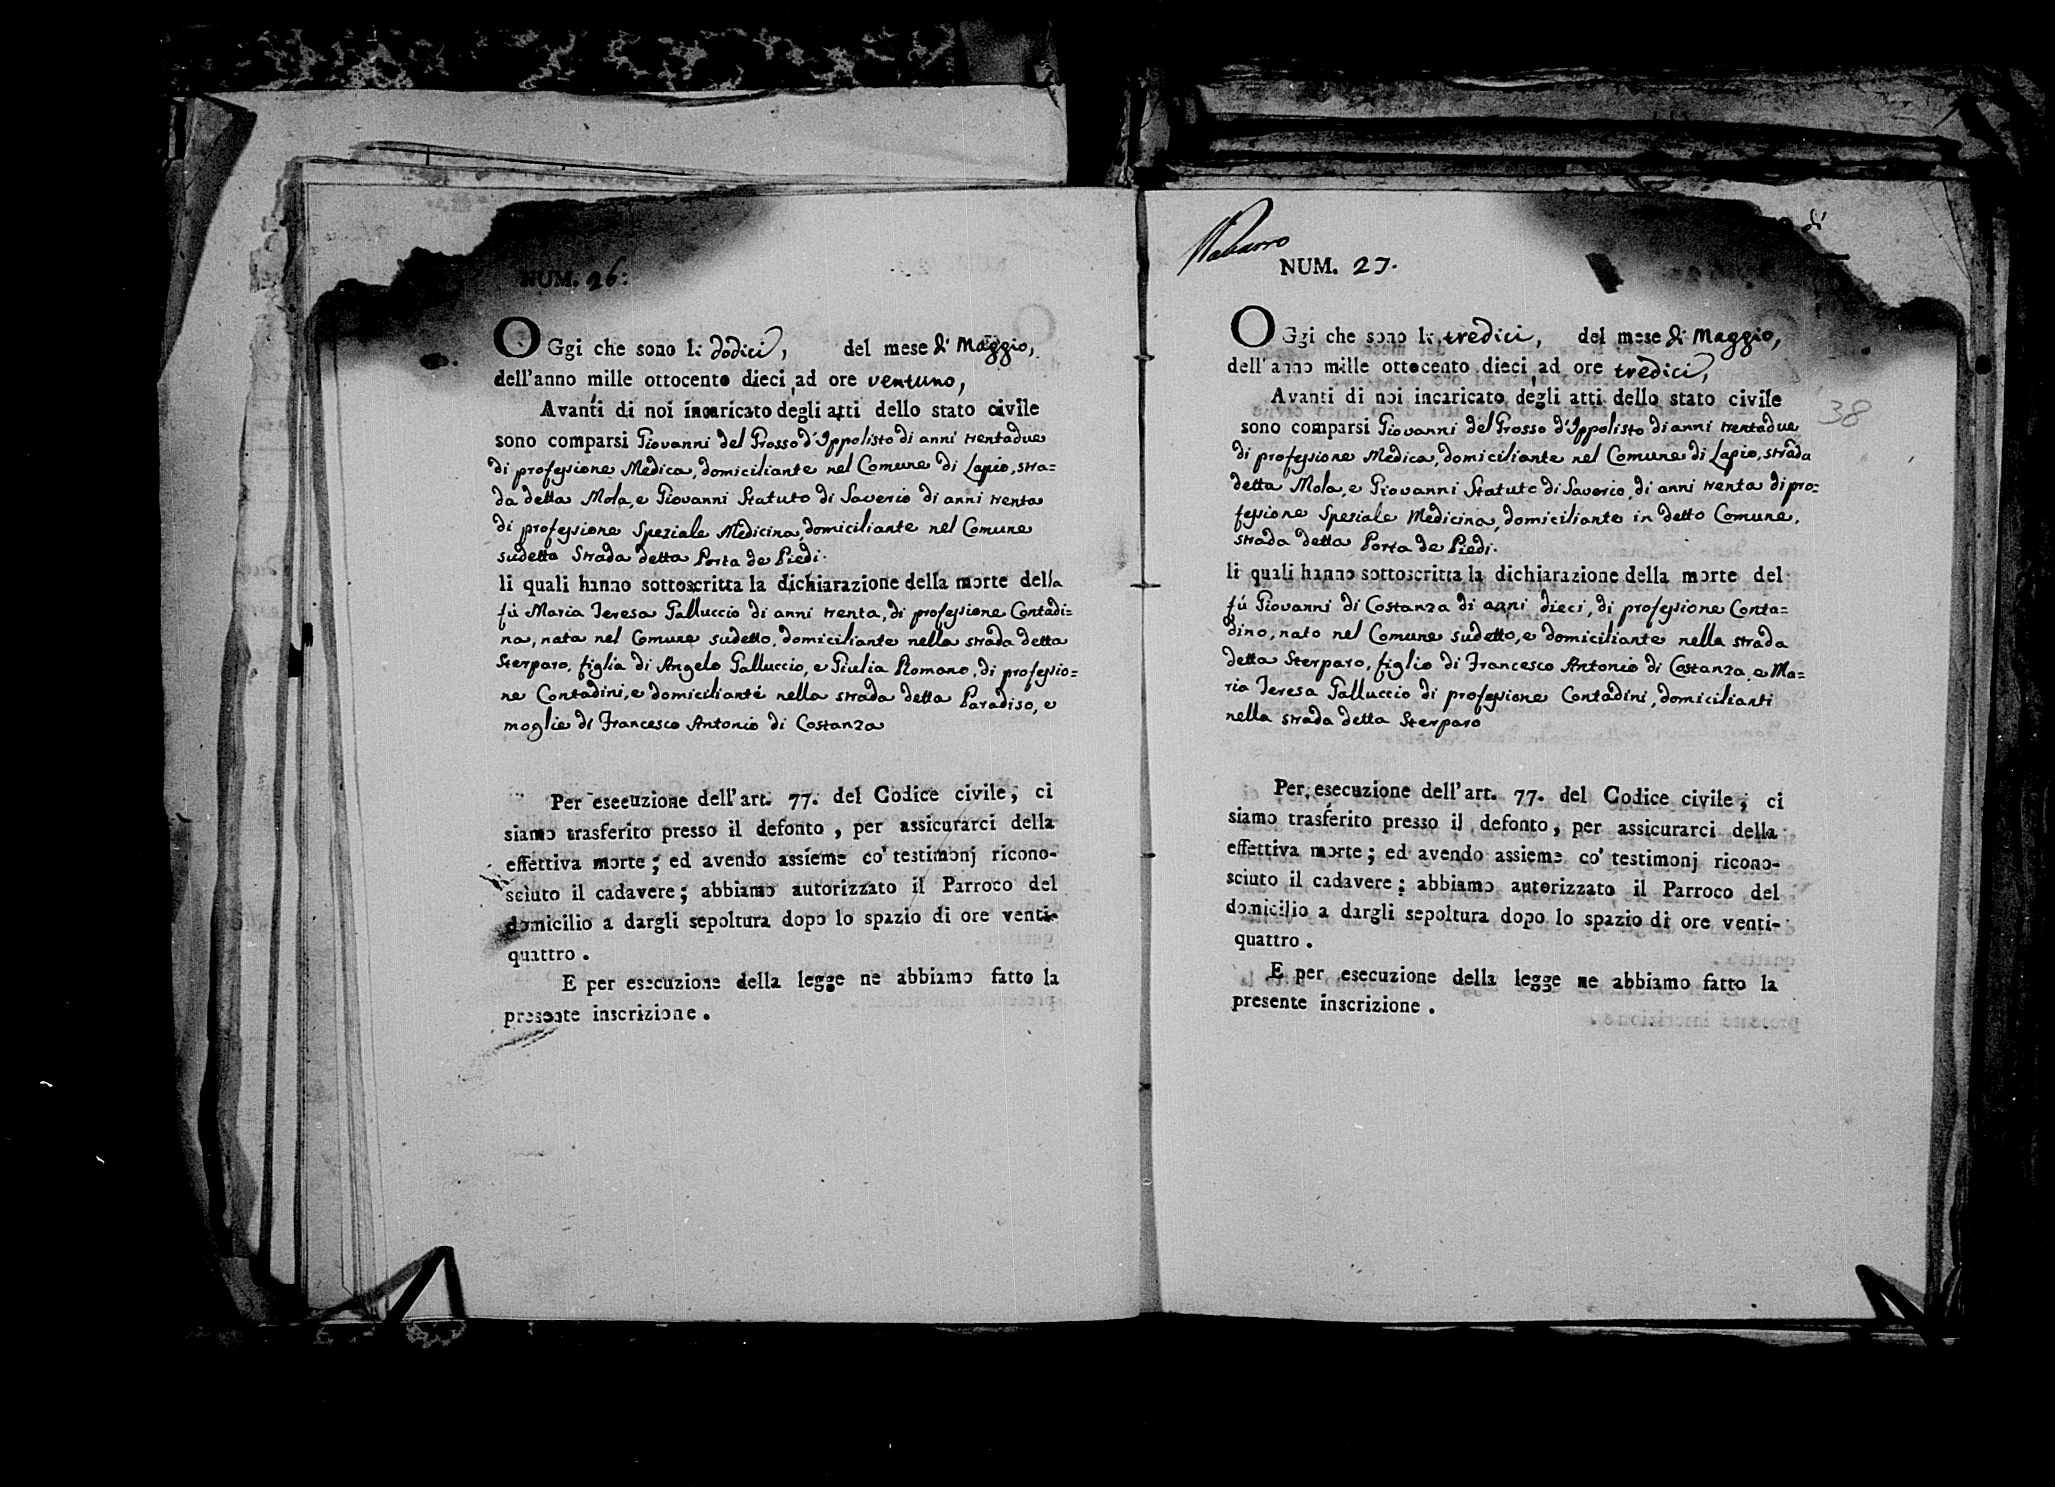 NUM. 26:
OGgi che sono li dodici, del mese di Maggio,
dell'anno mille ottocento dieci ad ore ventuno,
Avanti di noi incaricato degli atti dello stato civile
sono comparsi Giovanni del Grosso d'Ippolisto di anni trentadue
di professione Medica, domiciliante nel Comune di Lapio, stra=
da detta Mola, e Giovanni Statuto di Saverio di anni trenta
di professione Speziale Medicina, domiciliante nel Comune
sudetto Strada detta Porta de Piedi.
li quali hanno sottoscritta la dichiarazione della morte della
fú Maria Teresa Galluccio di anni trenta, di professione Contadi=
na, nata nel Comune sudetto, domiciliante nella strada detta
Sterparo, figlia di Angelo Galluccio, e Giulia Romano, di professio=
ne Contadini, e domicilianti nella strada detta Paradiso, e
moglie di Francesco Antonio di Costanza
Per esecuzione dell'art. 77. del Codice civile, ci
siamo trasferito presso il defonto, per assicurarci della
effettiva morte; ed avendo assieme co' testimonj ricono-
sciuto il cadavere; abbiamo autorizzato il Parroco del
domicilio a dargli sepoltura dopo lo spazio di ore venti-
quattro.
E per esecuzione della legge ne abbiamo fatto la
presente inscrizione.
di
NUM. 27.
OGgi che sono li tredici, del mese di Maggio,
dell'anno mille ottocento dieci ad ore tredici,
Avanti di noi incaricato degli atti dello stato civile
38
sono comparsi Giovanni del Grosso d'Ippolisto di anni trentadue
di professione Medica, domiciliante nel Comune di Lapio, strada
detta Mola, e Giovanni Statuto di Saverio, di anni trenta di pro=
fessione Speziale Medicina, domiciliante in detto Comune,
strada detta Porta de Piedi.
li quali hanno sottoscritta la dichiarazione della morte del
fú Giovanni di Costanza di anni dieci, di professione Conta=
dino, nato nel Comune sudetto, e domiciliante nella strada
detta Sterparo, figlio di Francesco Antonio di Costanza, e Ma=
ria Teresa Galluccio di professione Contadini, domicilianti
nella strada detta Sterparo
Per esecuzione dell'art. 77. del Codice civile, ci
siamo trasferito presso il defonto, per assicurarci della
effettiva morte; ed avendo assieme co' testimonj ricono-
sciuto il cadavere; abbiamo autorizzato il Parroco del
domicilio a dargli sepoltura dopo lo spazio di ore venti-
quattro.
E per esecuzione della legge ne abbiamo fatto la
presente inscrizione.